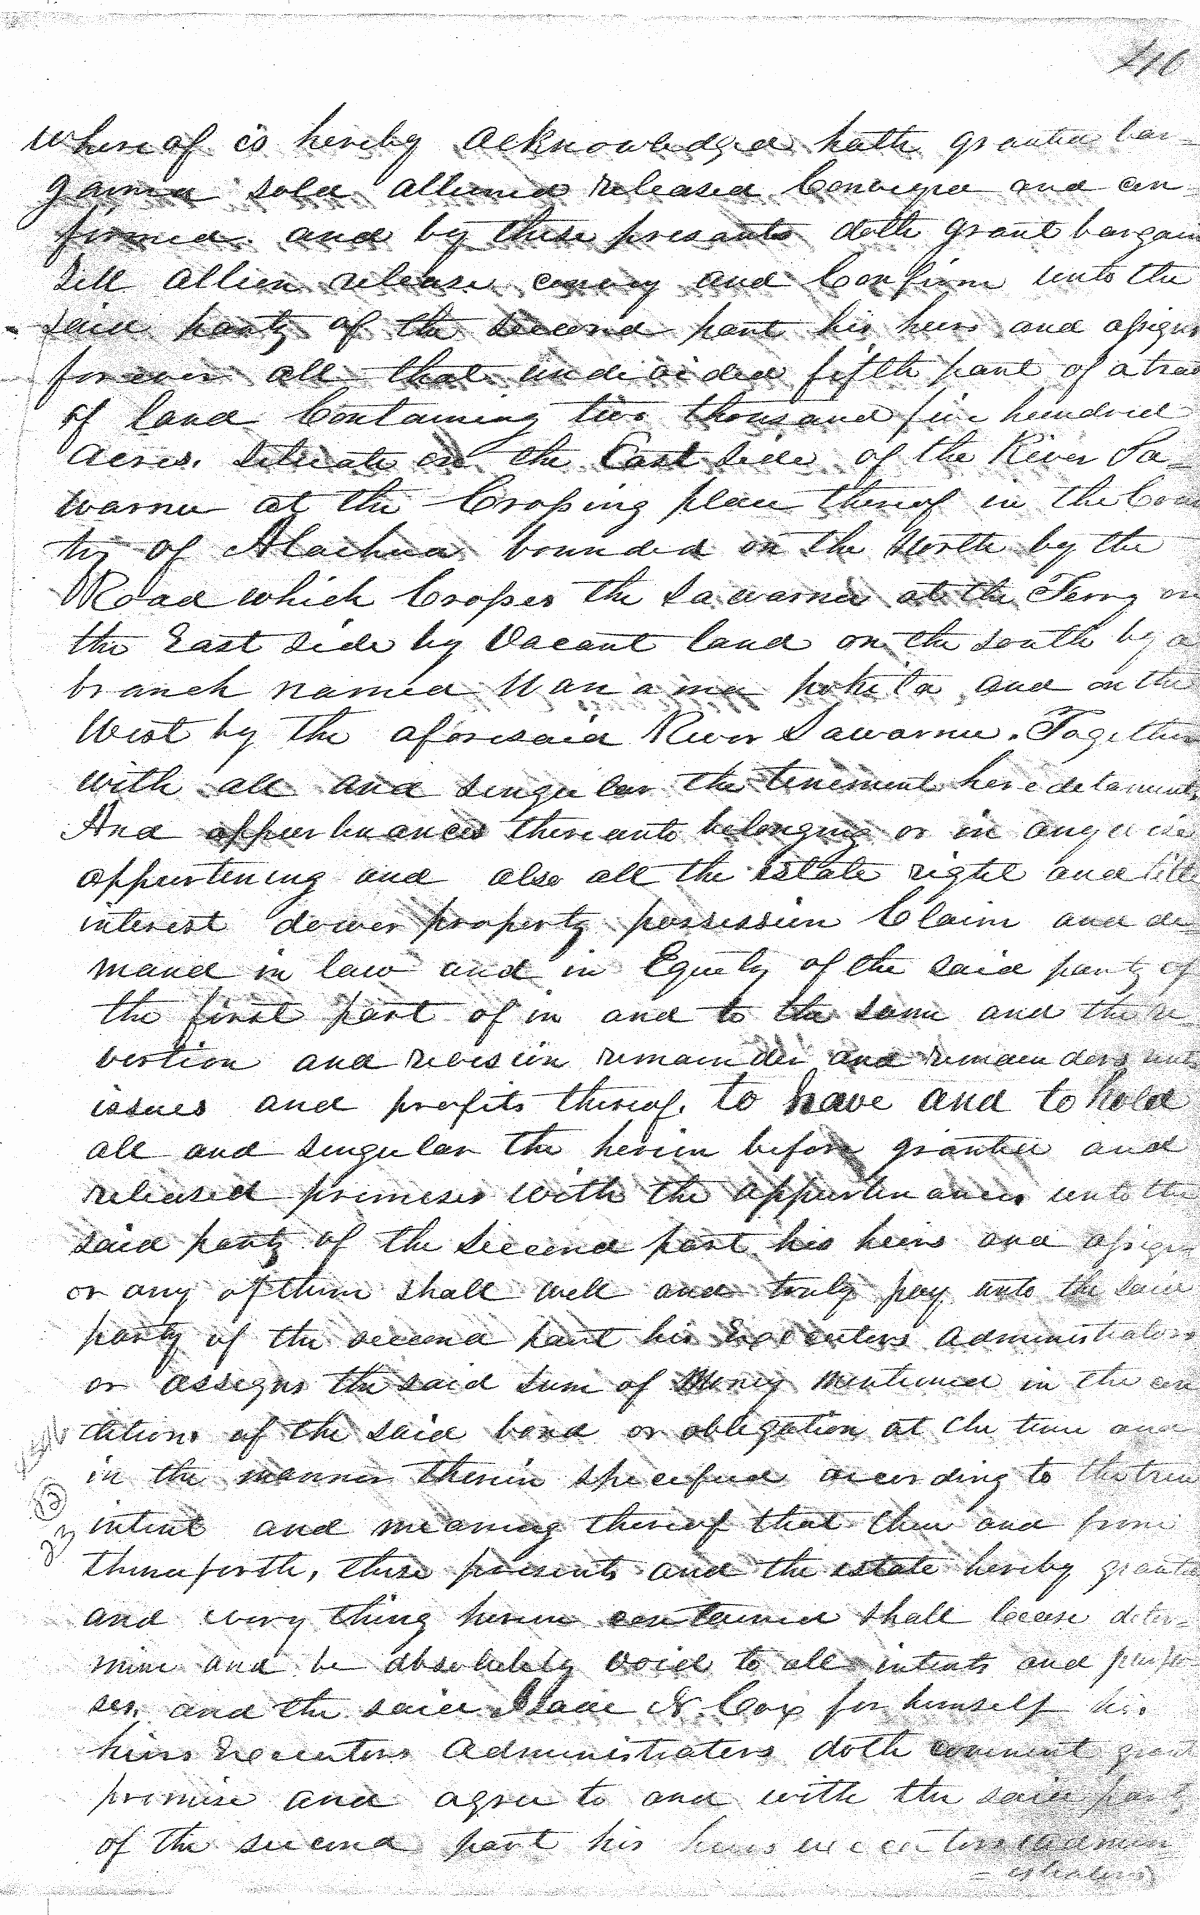 whereof is hereby acknowledged hath granted bar-
gained sold alliened released Conveyed and con-
firmed and by these presants doth grant bargain
sell allien release convey and Confirm unto the
said party of the second part his heirs and assigns
forever all that undivided fifth part of a trac
of land Containing two thousand five hundred
acres. Situate on the East side of the River Sa-
warnee at the Crossing place thereof in the Coun
ty of Alachua bounded on the North by the
Road which Crosses the Sawarnee at the Ferry on
the East side by Vacant land on the south by a
branch named Wanama pokila and on the
West by the aforesaid River Sawarnee. Together
with all and singular the tenement heredetaments
And appurtenances thereunto belonging or in anywise
appurtening and also all the estate right and title
interest dower property possession Claim and de-
mand in law and in Equety of the said party of
the first part of in and to the same and the re-
vertion and revesion remainder and remainders rents
issues and profits thereof. to have and to hold
all and singular the herein before granted and
released premeses with the appurtenances unto the
said party of the second part his heirs and assigns
or any of them shall well and truly pay unto the said
party of the second part his Executers administrators
or assigns the said sum of Money mentioned in the con
dition of the said bond or obligation at the time and
in the manner therein specified according to the true
intent and meaning thereof that then and from
thenceforth, these presents and the estate hereby granted
and every thing herein contained shall cease deter-
mine and be absolutely void to all intents and purpo
ses. and the said Isaac N. Cox for himself his
heirs Executors administrators doth covenent grant
promise and agree to and with the said party
of the second part his heirs executors admin
=istrators